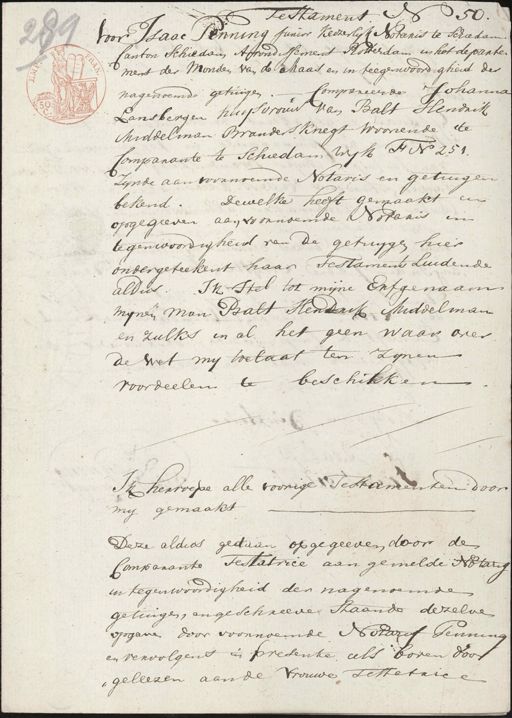 289
Testament No 50.
Voor Isaac Penning Junior Keizerlijk Notaris te Schiedam
Canton Schiedam Arrondissement Rotterdam in het departe-
ment der Monden van de Maas en in teegenwoordigheid der
nagenoemde getuigen. Compareerde Johanna
Lansbergen huysvrouw van Balt Hendrik
Middelman Brandersknegt woonende de
Comparante te Schiedam Wyk F No 251.
Zynde aan voornoemde Notaris en getuigen
bekend. Dewelke heeft gemaakt en
opgegeven aan voornoemde Notaris in
tegenwoordigheid van de getuygen hier
ondergetekent haar Testament Luidende
aldus. Ik stel tot mijne Erfgenaam
mynen man Balt Hendrik Middelman
en zulks in al het geen waar over
de wet my toelaat ten zynen
voordeelen te beschikken
Ik herroepe alle voorige Testamenten door
my gemaakt
Deze aldus gedaan opgegeven door de
Comparante Testatrice aan gemelde Notaris
in tegenwoordigheid der nagenoemde
getuigen, angeschreeve staande dezelve
opgave door voornoemde Notaris Penning
en vervolgens in presentie als boven voor
geleezen aan de Vrouwe Testatrice